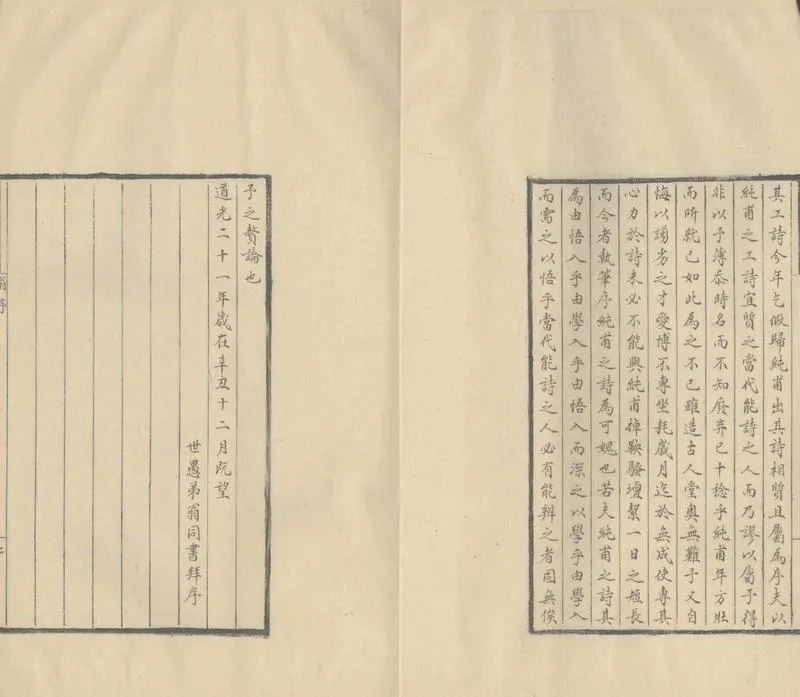 其工詩今年乞假歸純甫出其詩相質且屬為序夫以
純甫之工詩宜質之當代能詩之人而乃謬以屬予得
非以予薄忝時名而不知廢弃已十稔乎純甫年方壯
而所就已如此為之不已雖造古人堂奧無難予又自
悔以譾劣之才愛博不專坐耗歲月迄於無成使專其
心力於詩未必不能與純甫掉鞅騷壇絜一日之短長
而今者執筆序純甫之詩為可媿也若夫純甫之詩其
為由悟入乎由學入乎由悟入而深之以學乎由學入
而需之以悟乎當代能詩之人必有能辨之者固無俟
予之贅論也
道光二十一年歲在辛丑十二月既望
世愚弟翁同書拜序